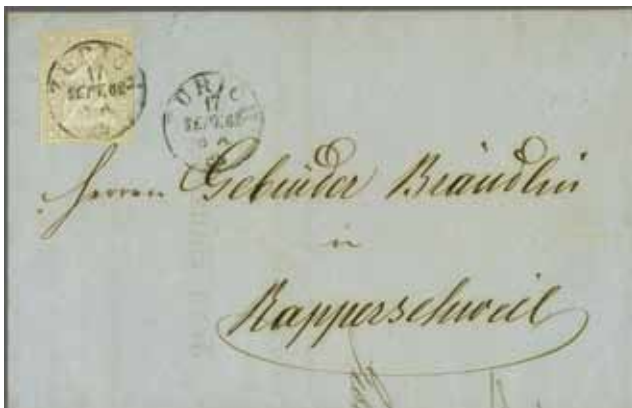 ZÜRICH
17
SEPT. 62
ZÜRICH
17
SEPT. 62
Herren Gebrüder Brändlin
in
Rapperschweil